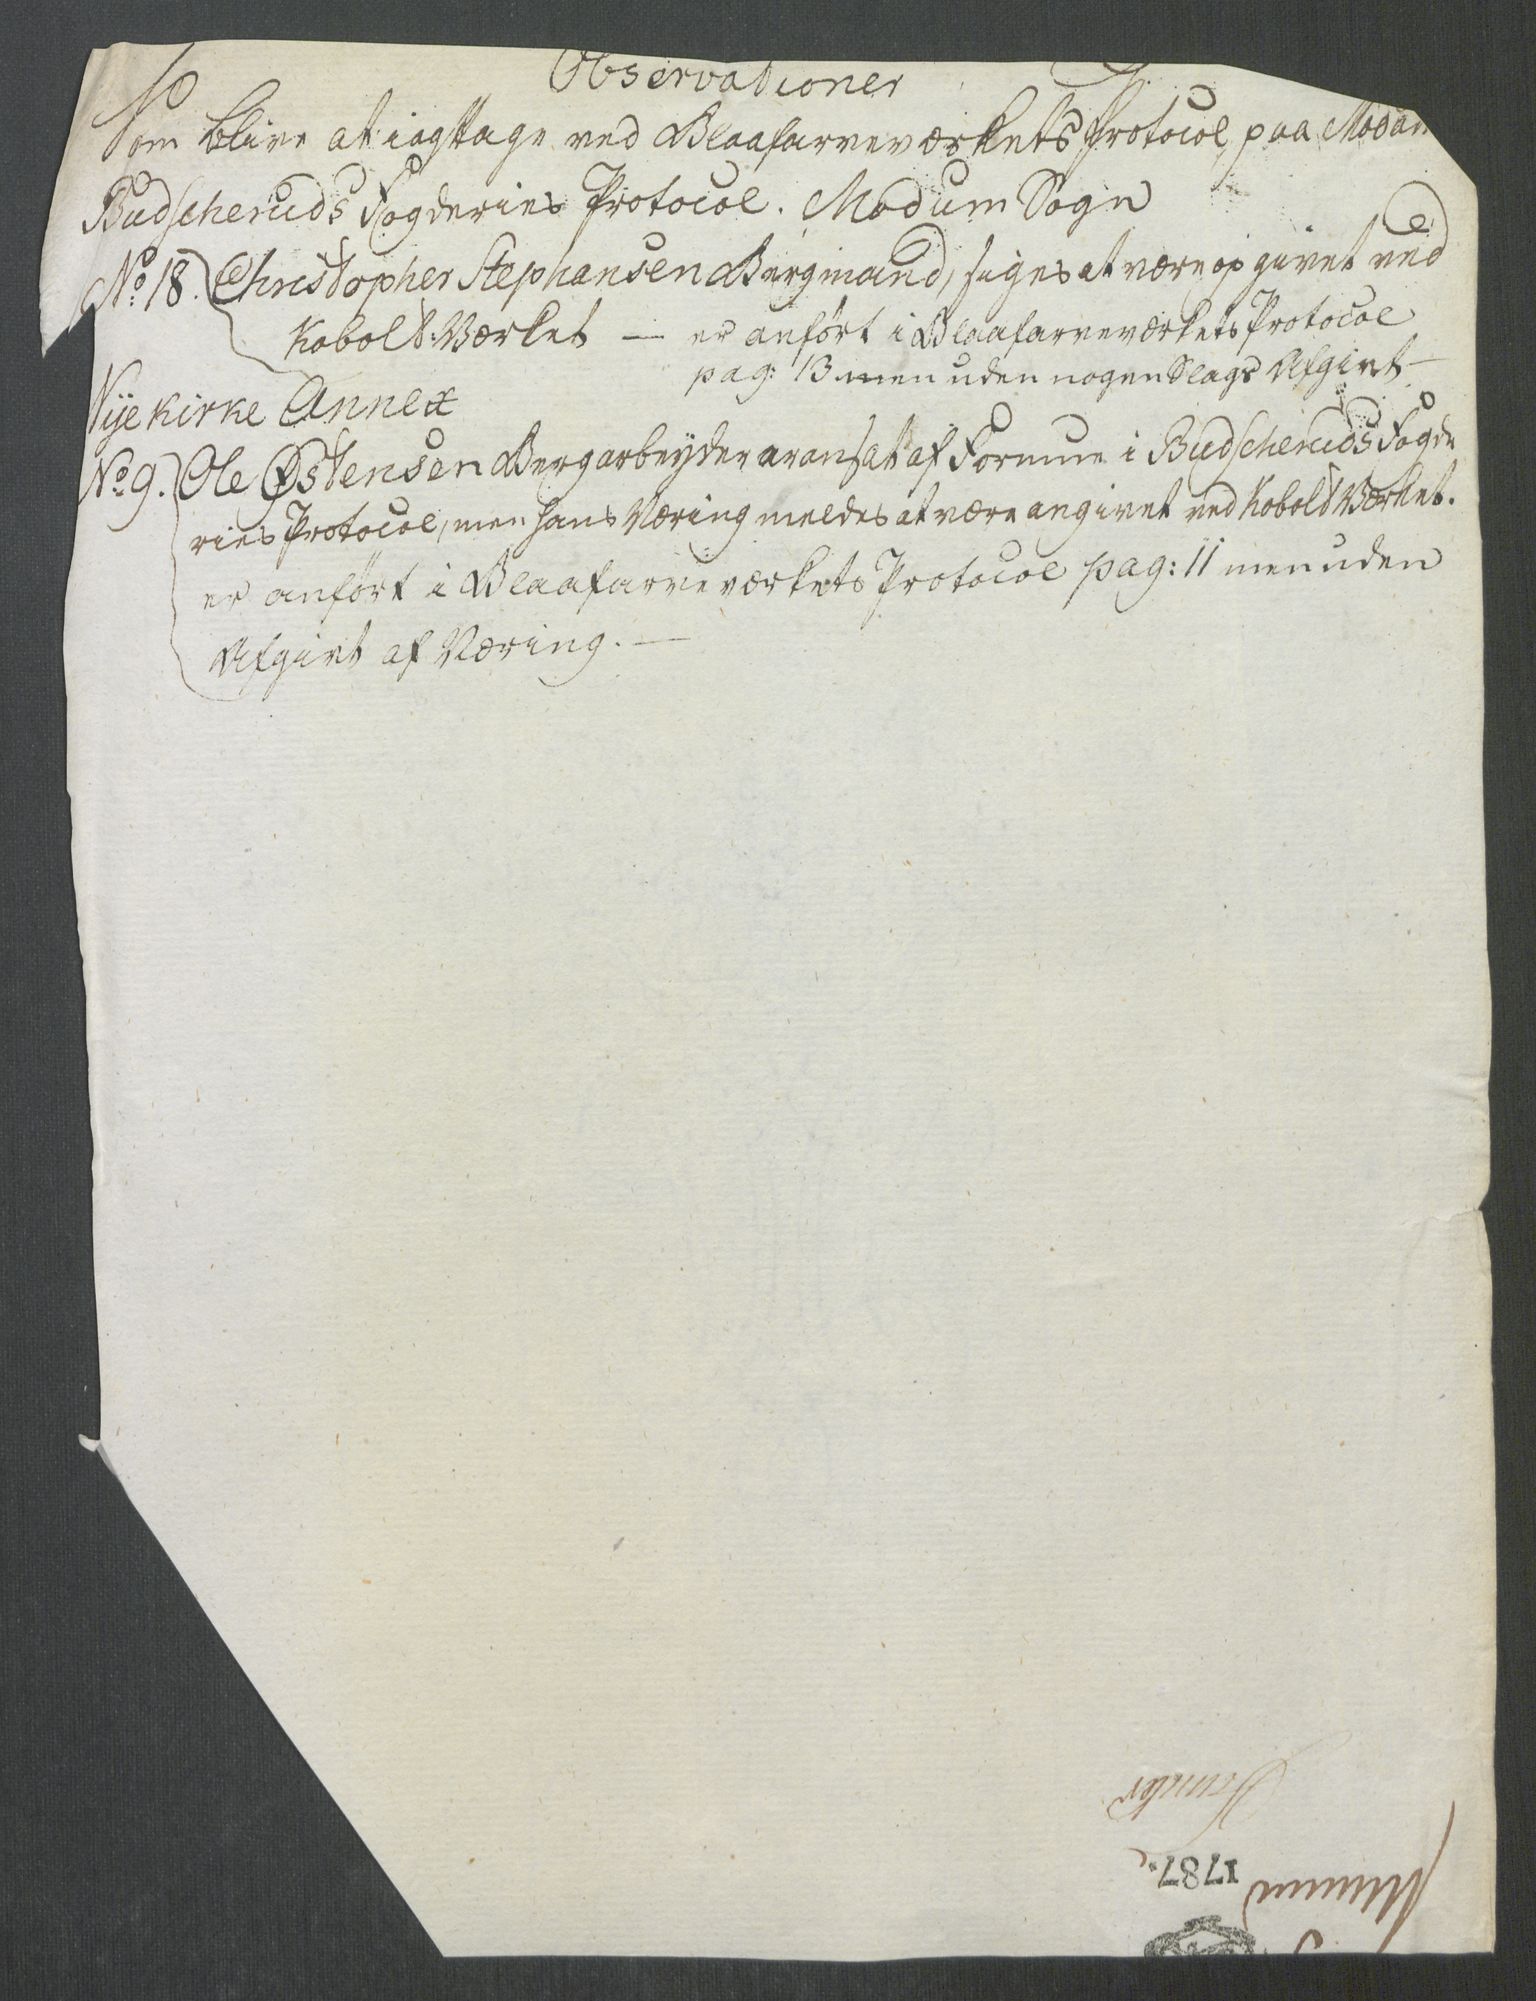 Observationer
Som blive at iagttage ved Blaafarveværkets Protocol, paa Modum
Budscheruds Fogderies Protocol. Modum Sogn
No 18. Christopher Stephansen Bergmand, siges at være opgivet ved
Kobolt:Værket — er anført i Blaafarveværkets Protocol
pag: 13 men uden nogen Slags Afgivt —
Nye kirke Annex
No 9. Ole Østensen Bergarbeyder er ansat af Formue i Budscheruds Fogde
ries Protocol, men hans Næring meldes at være angivet ved Kobolt Værket.
er anført i Blaafarveværkets Protocol pag: 11 men uden
Afgivt af Næring. —
1787.